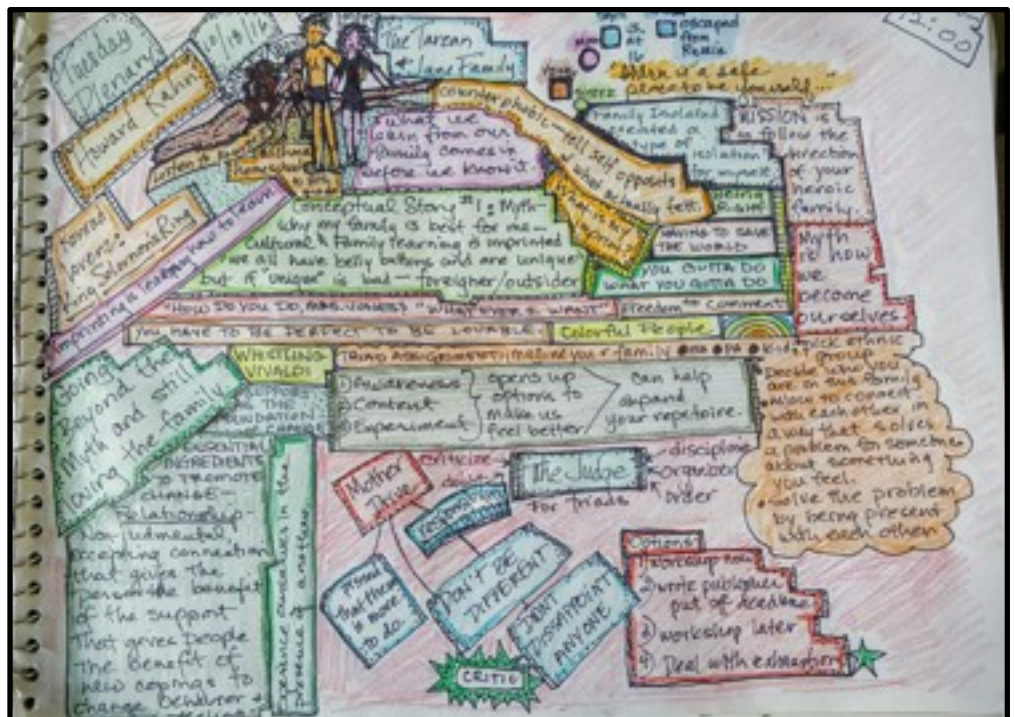 Tuesday
Plenary
10/18/16
The Tarzan
+ Jane Family
escaped
from
Russia
12:00
Howard Kahn
when is a safe
place to be yourself...
Counterphobic - tell self opposite
of what actually felt.
what we
learn from our
family comes in
before we know it.
Family Isolated
created a
type of
isolation
for myself
MISSION is
to follow the
direction
of your
heroic
family...
Konrad
Lorenz:
King Solomon's Ring
Imprinting is learning how to learn
Conceptual Story #1: Myth-
why my family is best for me-
Cultural & Family learning is imprinted
we all have belly buttons and are unique
but if "unique" is bad - foreigner/outsider
What is my
Being
Right
HAVING TO SAVE
THE WORLD
YOU GOTTA DO
WHAT YOU GOTTA DO
Myth
is how
we
become
ourselves.
"HOW DO YOU DO, MRS. JONES?"
"WHAT EVER I WANT"
Freedom to comment
YOU HAVE TO BE PERFECT TO BE LOVABLE.
Colorful People
WHISTLING
VIVALDI
TRIAD ASSIGNMENT: imagine your family
Going
Beyond the
Myth and still
loving the family
1) Awareness
2) Content
3) Experiment
opens up
options to
make us
feel better
can help
expand
your repertoire.
pick ethnic
group
Decide who you
are in this family
Allow to connect
with each other, in
a way that solves
a problem for someone
about something
you feel.
Solve the problem
by being present
with each other
ESSENTIAL
INGREDIENTS
TO PROMOTE
CHANGE -
Relationship-
Non-judmental,
accepting connection
that gives the
person the benefit
of the support
That gives people
the benefit of
new copings to
change behavior +
experience ourselves in the
presence of another.
Mother
Drive
criticize
The Judge
For triads
discipline
organizer
order
responsible
proud
that there
is more
to do.
DON'T BE
DIFFERENT
DON'T
DISSAPOINT
ANYONE
CRITIC
Options:
1) workshop now
2) wrote publisher
put of deadline
3) workshop later
4) Deal with exhaustion